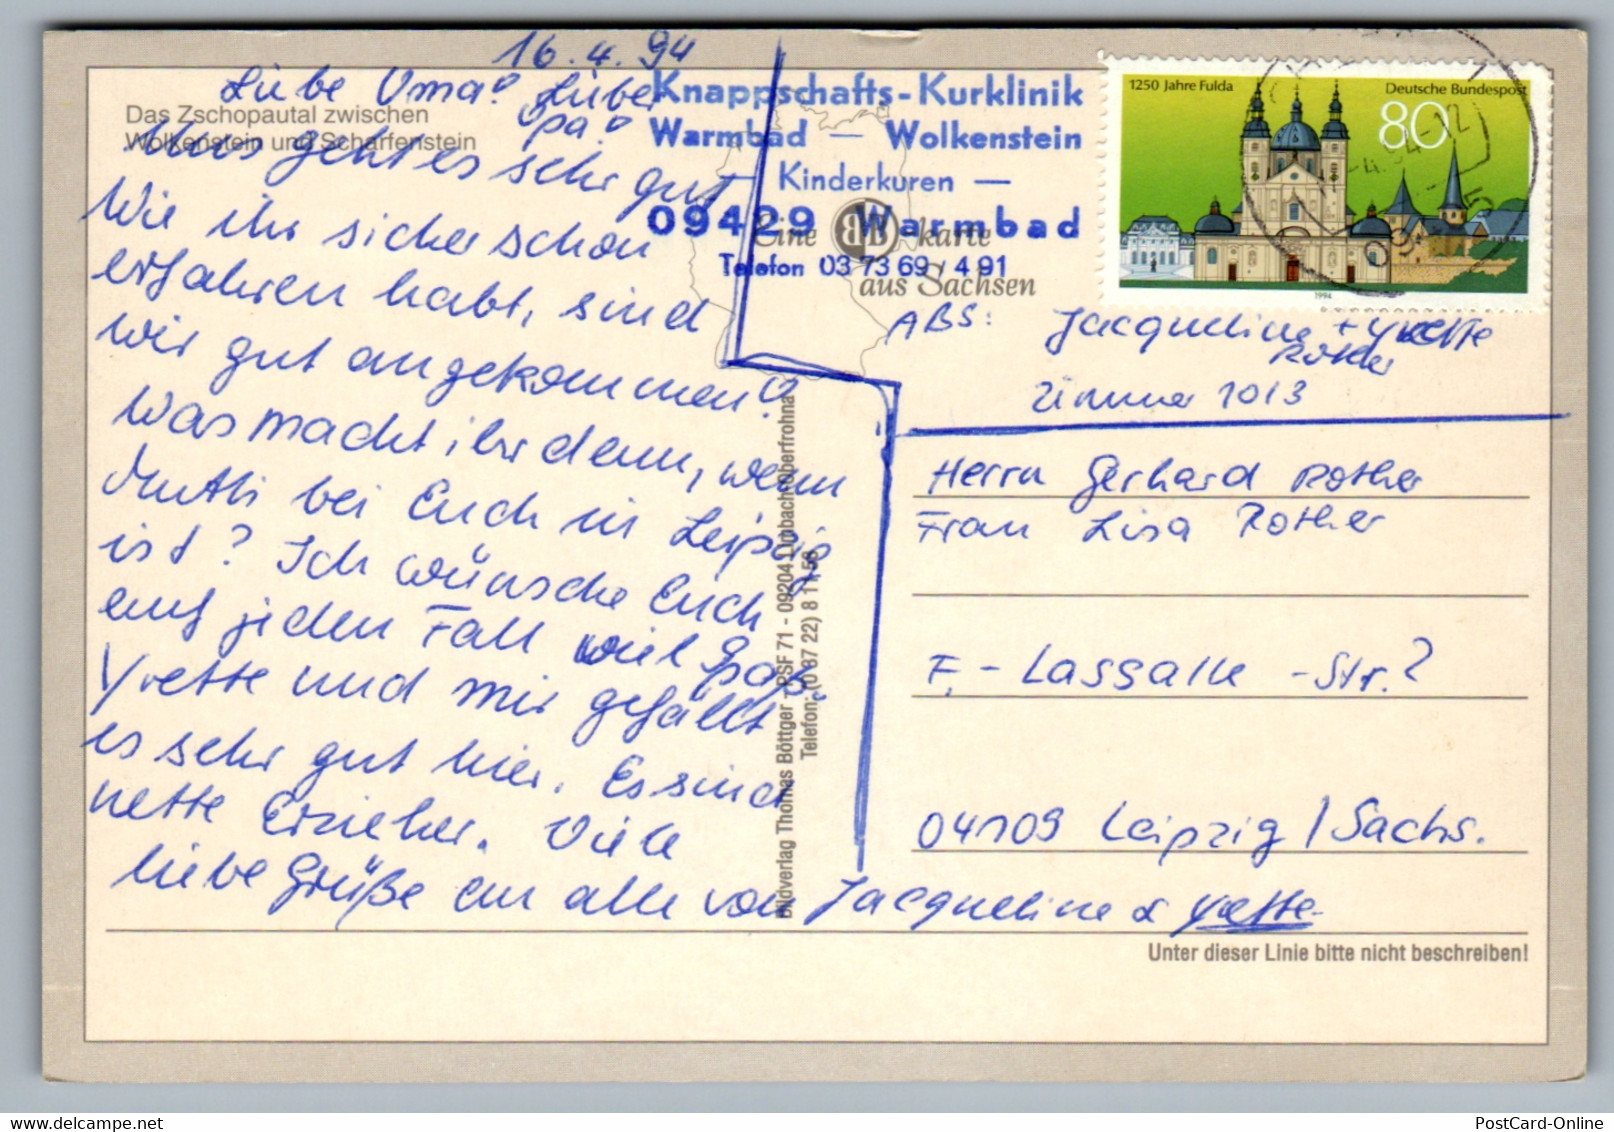 16.4.94
Liebe Oma! Lieber
Opa!
Uns geht es sehr gut
Wie ihr sicher schon
erfahren habt, sind
wir gut angekommen!
Was macht ihr denn, wenn
Mutti bei Euch in Leipzig
ist? Ich wünsche Euch
auf jeden Fall viel Spaß.
Yvette und mir gefällt
es sehr gut hier. Es sind
nette Erzieher. Viele
liebe Grüße an alle von Jacqueline & Yvette
Das Zschopautal zwischen
Wolkenstein und Scharfenstein
Knappschafts-Kurklinik
Warmbad — Wolkenstein
Kinderkuren —
09429 Warmbad
Telefon 03 73 69 / 4 91
Eine BB karte
aus Sachsen
1250 Jahre Fulda
Deutsche Bundespost
80
1994
ABS: Jacqueline + Yvette
Rother
Zimmer 1013
Herrn Gerhard Rother
Frau Lisa Rother
F.-Lassalle-Str.?
04109 Leipzig / Sachs.
Bildverlag Thomas Böttger - PSF 71 - 09204 Limbach-Oberfrohna
Telefon: (0 37 22) 8 11 58
Unter dieser Linie bitte nicht beschreiben!
PostCard-Online